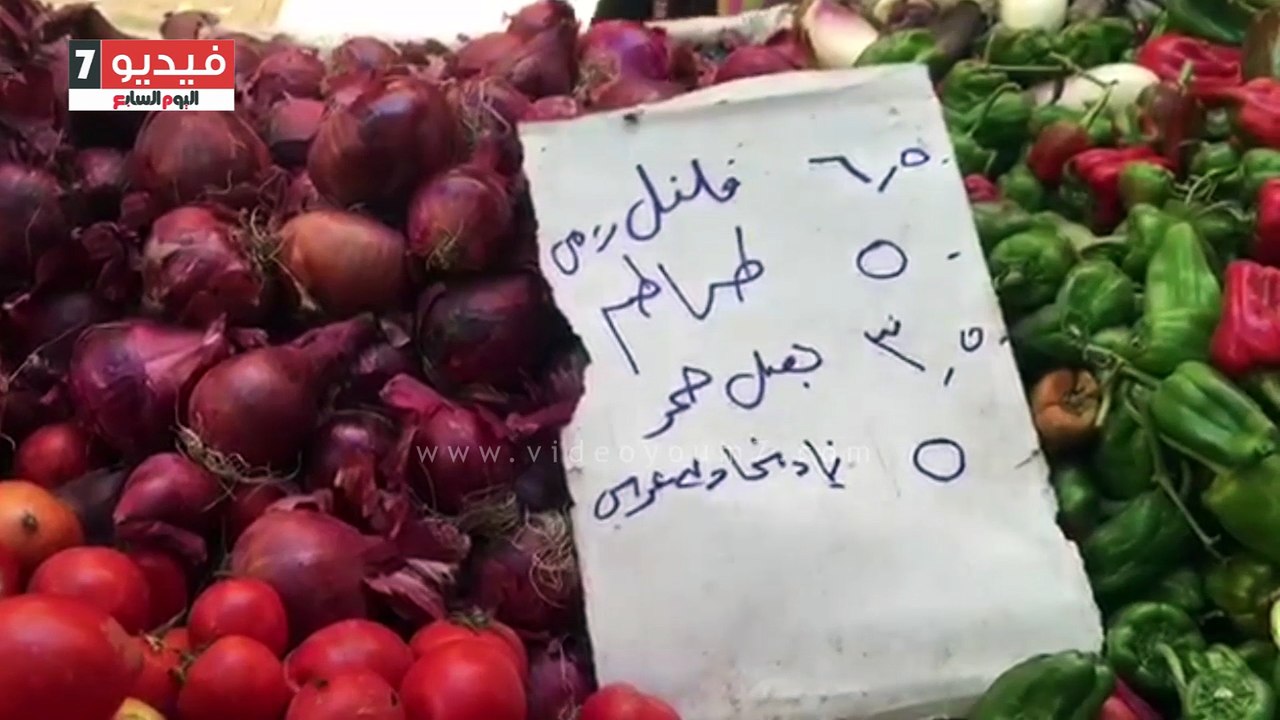 7 فيديو
اليوم السابع
فلفل رومى ٦,٥
طماطم ٥
بصل احمر ٣,٥
باذنجان عروس ٥
www.videoyoum7.com